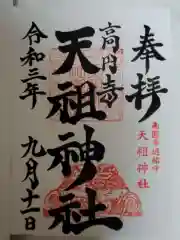 奉拝
高円寺
天祖神社
令和三年
九月十一日
天祖神社